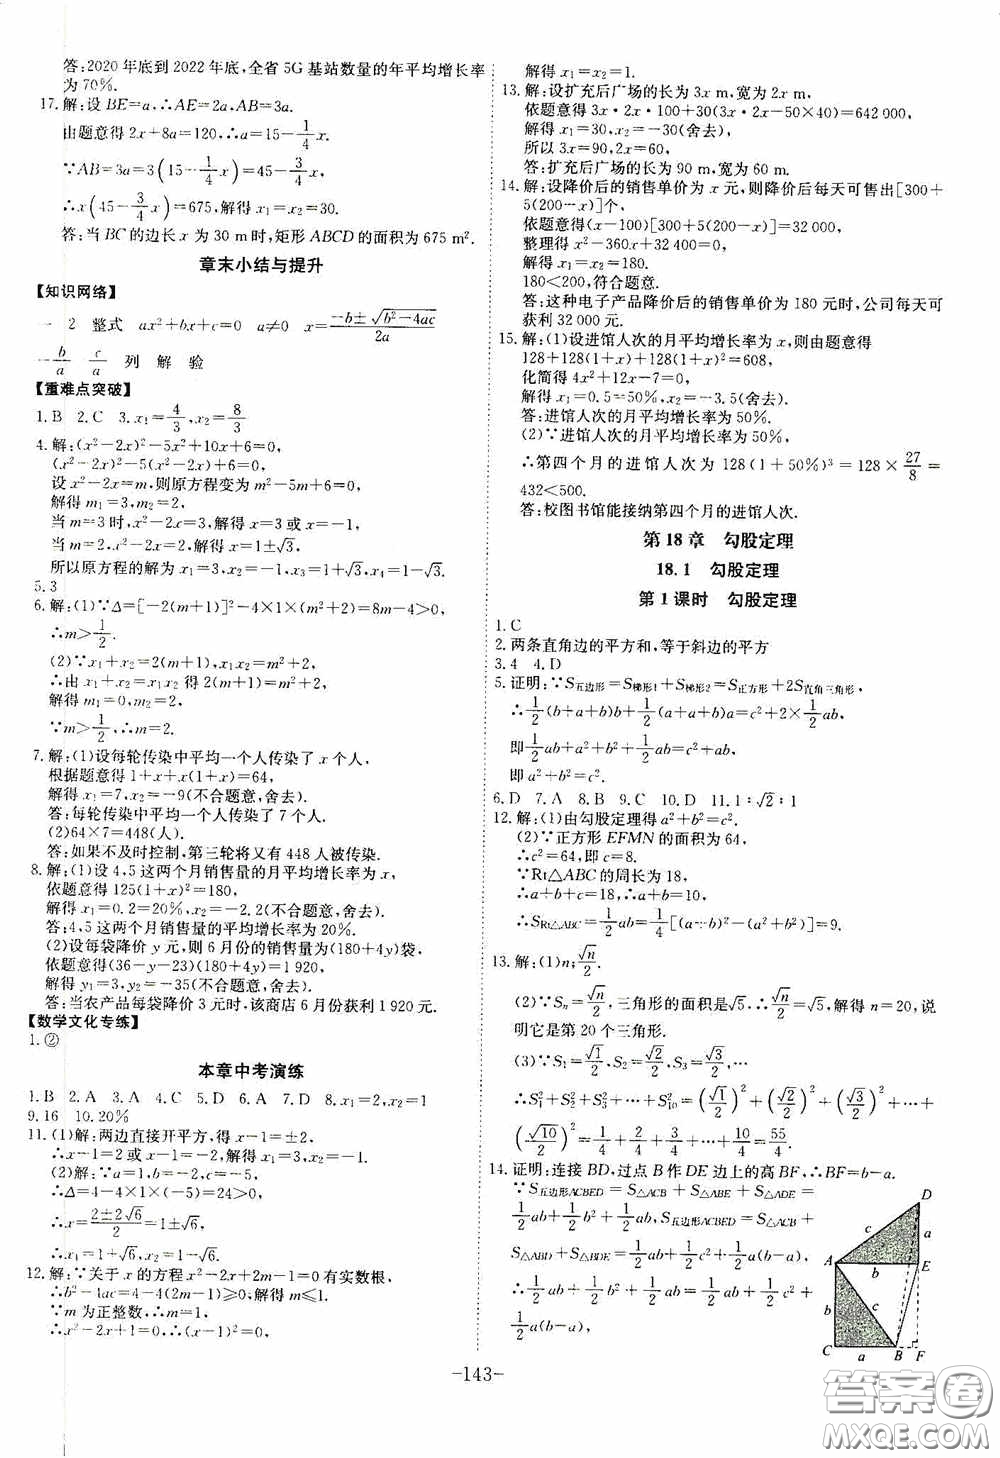 答:2020年底到2022年底,全省5G基站数量的年平均增长率
为70%.
17.解:设BE=a,∴AE=2a,AB=3a.
由题意得2x+8a=120,∴a=15-1/4x.
∵AB=3a=3(15-1/4x)=45-3/4x,
∴x(45-3/4x)=675,解得x₁=x₂=30.
答:当BC的边长x为30 m时,矩形ABCD的面积为675 m².
章末小结与提升
【知识网络】
一 2 整式 ax²+bx+c=0 a≠0 x=(-b±√(b²-4ac))/2a
-b/a c/a 列 解 验
【重难点突破】
1.B 2.C 3.x₁=4/3,x₂=8/3
4.解:(x²-2x)²-5x²+10x+6=0,
(x²-2x)²-5(x²-2x)+6=0,
设x²-2x=m,则原方程变为m²-5m+6=0,
解得m₁=3,m₂=2.
当m=3时,x²-2x=3,解得x=3或x=-1,
当m=2,x²-2x=2,解得x=1±√3,
所以原方程的解为x₁=3,x₂=-1,x₃=1+√3,x₄=1-√3.
5.3
6.解:(1)∵Δ=[-2(m+1)]²-4×1×(m²+2)=8m-4>0,
∴m>1/2.
(2)∵x₁+x₂=2(m+1),x₁x₂=m²+2,
∴由x₁+x₂=x₁x₂得2(m+1)=m²+2,
解得m₁=0,m₂=2,
∵m>1/2,∴m=2.
7.解:(1)设每轮传染中平均一个人传染了x个人,
根据题意得1+x+x(x+1)=64,
解得x₁=7,x₂=-9(不合题意,舍去).
答:每轮传染中平均一个人传染了7个人.
(2)64×7=448(人).
答:如果不及时控制,第三轮将又有448人被传染.
8.解:(1)设4,5这两个月销售量的月平均增长率为x,
依题意得125(1+x)²=180,
解得x₁=0.2=20%,x₂=-2.2(不合题意,舍去).
答:4,5这两个月销售量的平均增长率为20%.
(2)设每袋降价y元,则6月份的销售量为(180+4y)袋,
依题意得(36-y-23)(180+4y)=1 920,
解得y₁=3,y₂=-35(不合题意,舍去).
答:当农产品每袋降价3元时,该商店6月份获利1 920元.
【数学文化专练】
1.②
本章中考演练
1.B 2.A 3.A 4.C 5.D 6.A 7.D 8.x₁=2,x₂=1
9.16 10.20%
11.(1)解:两边直接开平方,得x-1=±2,
∴x-1=2或x-1=-2,解得x₁=3,x₂=-1.
(2)解:∵a=1,b=-2,c=-5,
∴Δ=4-4×1×(-5)=24>0,
∴x=(2±2√6)/2=1±√6,
∴x₁=1+√6,x₂=1-√6.
12.解:∵关于x的方程x²-2x+2m-1=0有实数根,
∴b²-4ac=4-4(2m-1)≥0,解得m≤1.
∵m为正整数,∴m=1,
∴x²-2x+1=0,∴(x-1)²=0,
解得x₁=x₂=1.
13.解:设扩充后广场的长为3x m,宽为2x m,
依题意得3x·2x·100+30(3x·2x-50×40)=642 000,
解得x₁=30,x₂=-30(舍去),
所以3x=90,2x=60,
答:扩充后广场的长为90 m,宽为60 m.
14.解:设降价后的销售单价为x元,则降价后每天可售出[300+
5(200-x)]个,
依题意得(x-100)[300+5(200-x)]=32 000,
整理得x²-360x+32 400=0,
解得x₁=x₂=180.
180<200,符合题意.
答:这种电子产品降价后的销售单价为180元时,公司每天可
获利32 000元.
15.解:(1)设进馆人次的月平均增长率为x,则由题意得
128+128(1+x)+128(1+x)²=608,
化简得4x²+12x-7=0,
解得x₁=0.5=50%,x₂=-3.5(舍去).
答:进馆人次的月平均增长率为50%.
(2)∵进馆人次的月平均增长率为50%,
∴第四个月的进馆人次为128(1+50%)³=128×27/8=
432<500.
答:校图书馆能接纳第四个月的进馆人次.
第18章 勾股定理
18.1 勾股定理
第1课时 勾股定理
1.C
2.两条直角边的平方和,等于斜边的平方
3.4 4.D
5.证明:∵S五边形=S梯形1+S梯形2=S正方形+2S直角三角形,
∴1/2(b+a+b)b+1/2(a+a+b)a=c²+2×1/2ab,
即1/2ab+a²+b²+1/2ab=c²+ab,
即a²+b²=c².
6.D 7.A 8.B 9.C 10.D 11.1:√2:1
12.解:(1)由勾股定理得a²+b²=c².
(2)∵正方形EFMN的面积为64,
∴c²=64,即c=8.
∵Rt△ABC的周长为18,
∴a+b+c=18,∴a+b=10,
∴SRt△ABC=1/2ab=1/4[(a+b)²-(a²+b²)]=9.
13.解:(1)n;√n/2.
(2)∵Sₙ=√n/2,三角形的面积是√5,∴√n/2=√5,解得n=20,说
明它是第20个三角形.
(3)∵S₁=√1/2,S₂=√2/2,S₃=√3/2,…,
∴S₁²+S₂²+S₃²+…+S₁₀²=(√1/2)²+(√2/2)²+(√3/2)²+…+
(√10/2)²=1/4+2/4+3/4+…+10/4=55/4.
14.证明:连接BD,过点B作DE边上的高BF,∴BF=b-a.
∵S五边形ACBED=S△ACB+S△ABE+S△ADE=
1/2ab+1/2b²+1/2ab,S五边形ACBED=S△ACB+
S△ABD+S△BDE=1/2ab+1/2c²+1/2a(b-a),
∴1/2ab+1/2b²+1/2ab=1/2ab+1/2c²+
1/2a(b-a),
D
c
a
A
b
E
b
c
C
a
B
F
-143-
答案卷
MXQE.COM